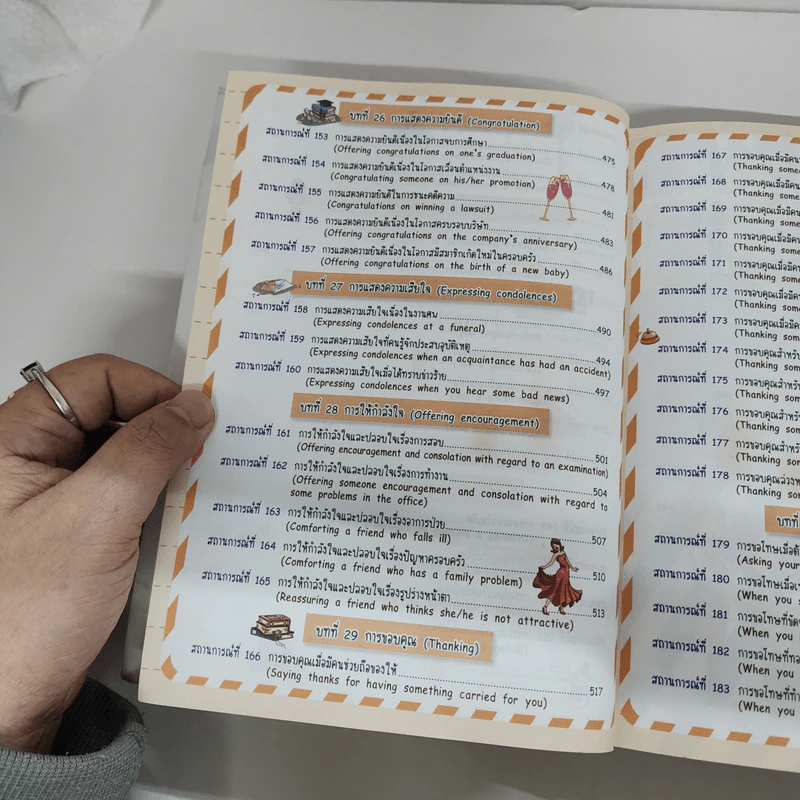 บทที่ 26 การแสดงความยินดี (Congratulation)
สถานการณ์ที่ 153 การแสดงความยินดีเนื่องในโอกาสจบการศึกษา 475
(Offering congratulations on one's graduation)
สถานการณ์ที่ 154 การแสดงความยินดีเนื่องในโอกาสเลื่อนตำแหน่งงาน 478
(Congratulating someone on his/her promotion)
สถานการณ์ที่ 155 การแสดงความยินดีในการชนะคดีความ 481
(Congratulations on winning a lawsuit)
สถานการณ์ที่ 156 การแสดงความยินดีเนื่องในโอกาสครบรอบบริษัท 483
(Offering congratulations on the company's anniversary)
สถานการณ์ที่ 157 การแสดงความยินดีเนื่องในโอกาสมีสมาชิกเกิดใหม่ในครอบครัว 486
(Offering congratulations on the birth of a new baby)
บทที่ 27 การแสดงความเสียใจ (Expressing condolences)
สถานการณ์ที่ 158 การแสดงความเสียใจเนื่องในงานศพ 490
(Expressing condolences at a funeral)
สถานการณ์ที่ 159 การแสดงความเสียใจที่คนรู้จักประสบอุบัติเหตุ 494
(Expressing condolences when an acquaintance has had an accident)
สถานการณ์ที่ 160 การแสดงความเสียใจเมื่อได้ทราบข่าวร้าย 497
(Expressing condolences when you hear some bad news)
บทที่ 28 การให้กำลังใจ (Offering encouragement)
สถานการณ์ที่ 161 การให้กำลังใจและปลอบใจเรื่องการสอบ 501
(Offering encouragement and consolation with regard to an examination)
สถานการณ์ที่ 162 การให้กำลังใจและปลอบใจเรื่องการทำงาน 504
(Offering someone encouragement and consolation with regard to
some problems in the office)
สถานการณ์ที่ 163 การให้กำลังใจและปลอบใจเรื่องอาการป่วย 507
(Comforting a friend who falls ill)
สถานการณ์ที่ 164 การให้กำลังใจและปลอบใจเรื่องปัญหาครอบครัว 510
(Comforting a friend who has a family problem)
สถานการณ์ที่ 165 การให้กำลังใจและปลอบใจเรื่องรูปร่างหน้าตา 513
(Reassuring a friend who thinks she/he is not attractive)
บทที่ 29 การขอบคุณ (Thanking)
สถานการณ์ที่ 166 การขอบคุณเมื่อมีคนช่วยถือของให้ 517
(Saying thanks for having something carried for you)
สถานการณ์ที่ 167 การขอบคุณเมื่อมีคน
(Thanking some
สถานการณ์ที่ 168 การขอบคุณเมื่อมีคน
(Thanking some
สถานการณ์ที่ 169 การขอบคุณเมื่อมีคน
(Thanking some
สถานการณ์ที่ 170 การขอบคุณเมื่อมีคน
(Thanking some
สถานการณ์ที่ 171 การขอบคุณเมื่อมีคน
(Thanking some
สถานการณ์ที่ 172 การขอบคุณเมื่อมีคน
(Thanking some
สถานการณ์ที่ 173 การขอบคุณเมื่อมีคน
(Thanking some
สถานการณ์ที่ 174 การขอบคุณสำหรับ
(Thanking some
สถานการณ์ที่ 175 การขอบคุณสำหรับ
(Thanking some
สถานการณ์ที่ 176 การขอบคุณสำหรับ
(Thanking some
สถานการณ์ที่ 177 การขอบคุณสำหรับ
(Thanking some
สถานการณ์ที่ 178 การขอบคุณล่วงห
(Thanking some
บทที่
สถานการณ์ที่ 179 การขอโทษเมื่อ
(Asking your
สถานการณ์ที่ 180 การขอโทษเมื่อ
(When you s
สถานการณ์ที่ 181 การขอโทษที่ขัด
(When you
สถานการณ์ที่ 182 การขอโทษที่
(When you
สถานการณ์ที่ 183 การขอโทษที่ทำ
(When you